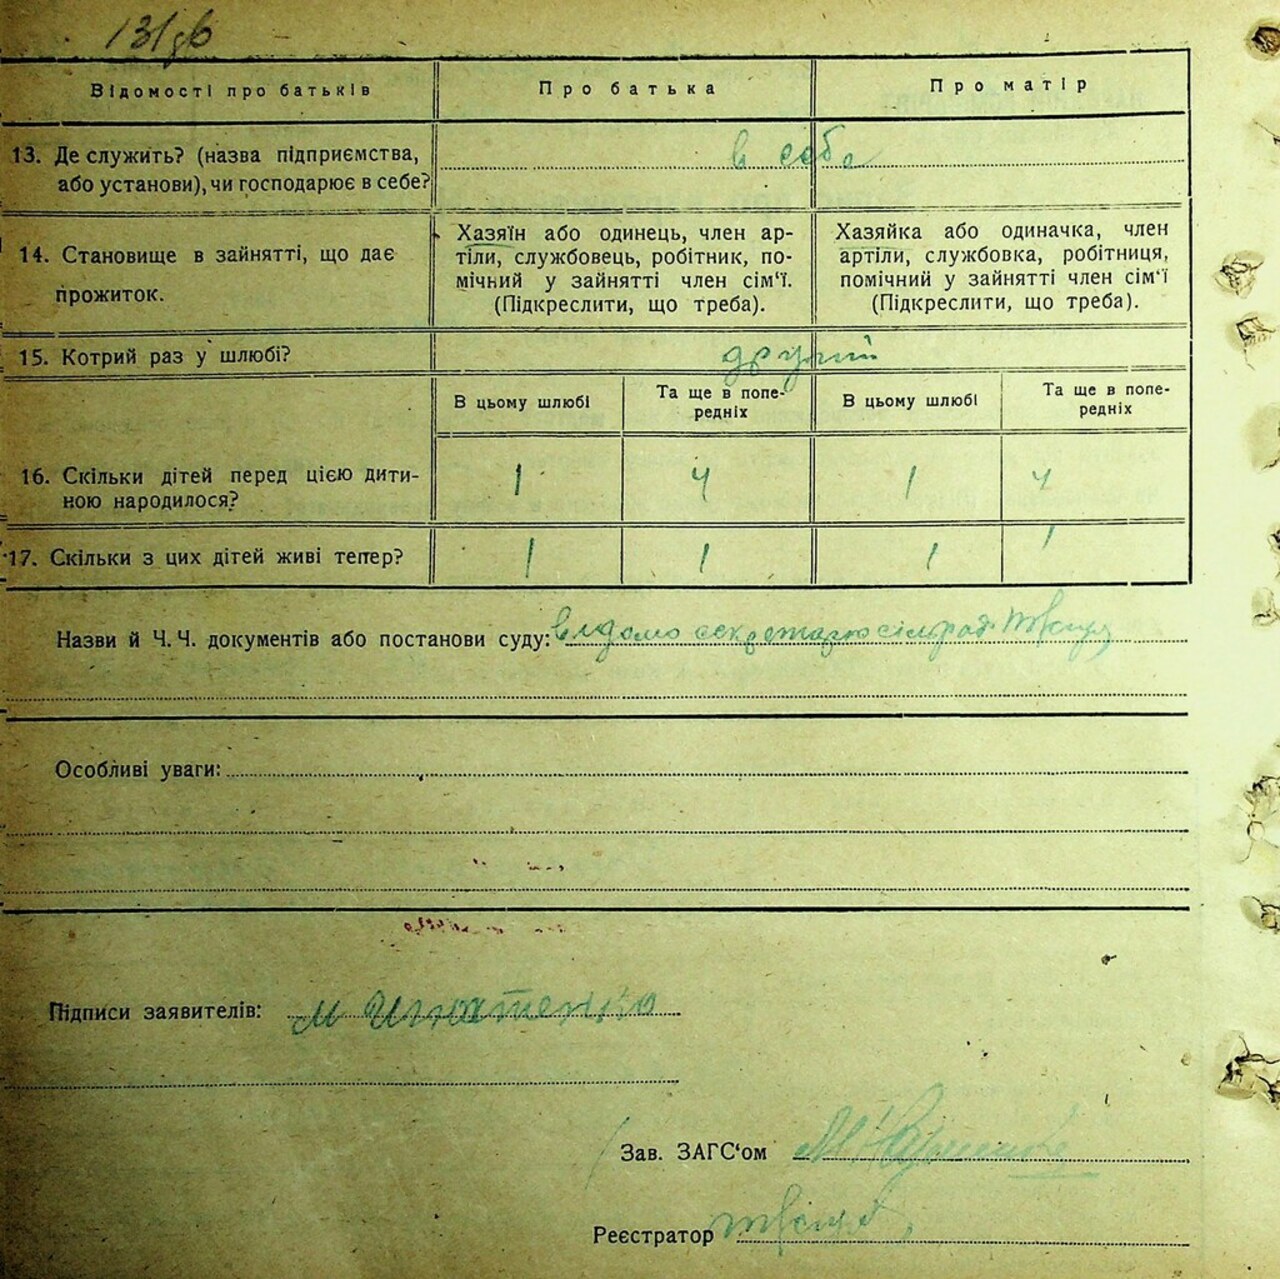 131зв
Відомості про батьків
Про батька
Про матір
13. Де служить? (назва підприємства,
або установи), чи господарює в себе?
в себе
14. Становище в зайнятті, що дає
прожиток.
Хазяїн або одинець, член ар-
тіли, службовець, робітник, по-
мічний у зайнятті член сім‘ї.
(Підкреслити, що треба).
Хазяйка або одиначка, член
артіли, службовка, робітниця,
помічний у зайнятті член сім‘ї
(Підкреслити, що треба).
15. Котрий раз у шлюбі?
другий
В цьому шлюбі
Та ще в попе-
редніх
В цьому шлюбі
Та ще в попе-
редніх
16. Скільки дітей перед цією дити-
ною народилося?
1 4 1 4
17. Скільки з цих дітей живі тепер?
1 1 1 1
Назви й Ч.Ч. документів або постанови суду: відомо секретарю сільрад
Особливі уваги:
Підписи заявителів: М Игнатенко
Зав. ЗАГС‘ом
Реєстратор